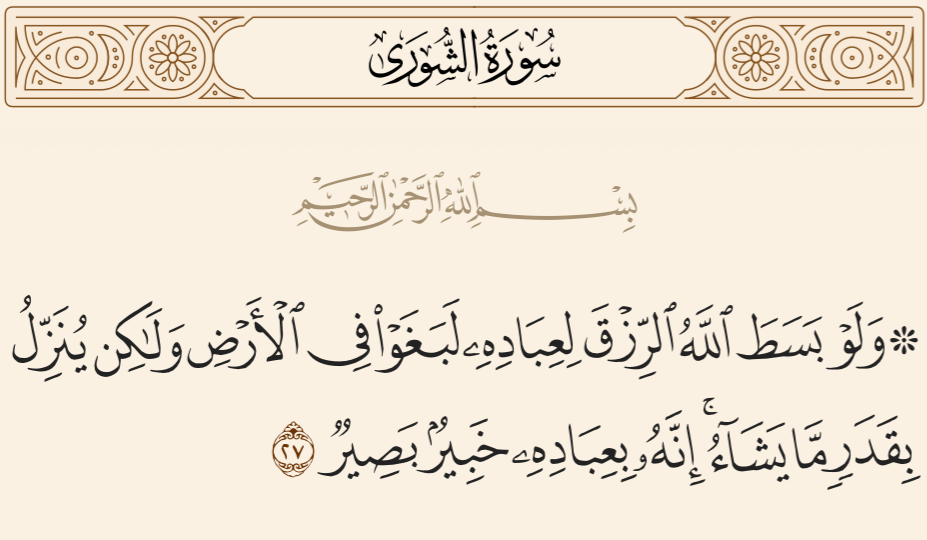 سُورَةُ الشُّورَىٰ
بِسْمِ ٱللَّهِ ٱلرَّحْمَٰنِ ٱلرَّحِيمِ
۞ وَلَوْ بَسَطَ ٱللَّهُ ٱلرِّزْقَ لِعِبَادِهِۦ لَبَغَوْا۟ فِى ٱلْأَرْضِ وَلَٰكِن يُنَزِّلُ
بِقَدَرٍ مَّا يَشَآءُ ۚ إِنَّهُۥ بِعِبَادِهِۦ خَبِيرٌۢ بَصِيرٌ ٢٧